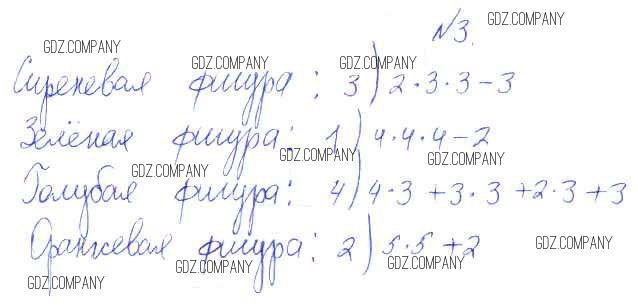 №3.
GDZ.COMPANY
GDZ.COMPANY
GDZ.COMPANY
GDZ.COMPANY
Сиреневая фигура: 3) 2·3·3-3
Зелёная фигура: 1) 4·4·4-2
GDZ.COMPANY
GDZ.COMPANY
GDZ.COMPANY
Голубая фигура: 4) 4·3+3·3+2·3+3
Оранжевая фигура: 2) 5·5+2
GDZ.COMPANY
GDZ.COMPANY
GDZ.COMPANY
GDZ.COMPANY